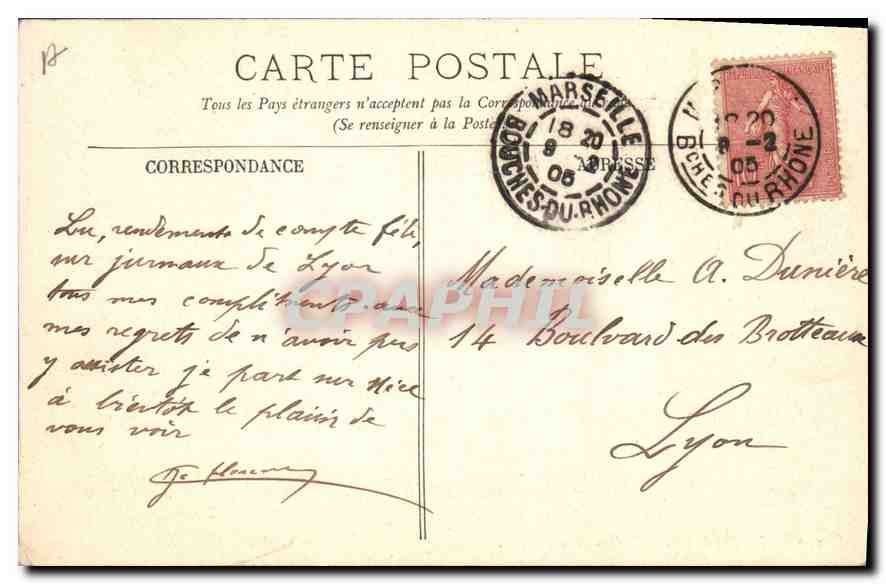 CARTE POSTALE
Tous les Pays étrangers n'acceptent pas la Correspondance
(Se renseigner à la Poste
CORRESPONDANCE
ADRESSE
MARSEILLE
18 20
9 -2
05
BOUCHES-DU-RHONE
REPUBLIQUE FRANÇAISE
10
20
9 -2
05
BCHES DU-RHÔNE
Lu, rendements de compte fête,
sur jurnaux de Lyon
tous mes compliments avec
mes regrets de n'avoir pas
y assister je part sur Nice
à bientôt le plaisir de
vous voir
Mademoiselle A. Dunière
14 Boulvard des Brotteaux
Lyon
CPAPHIL